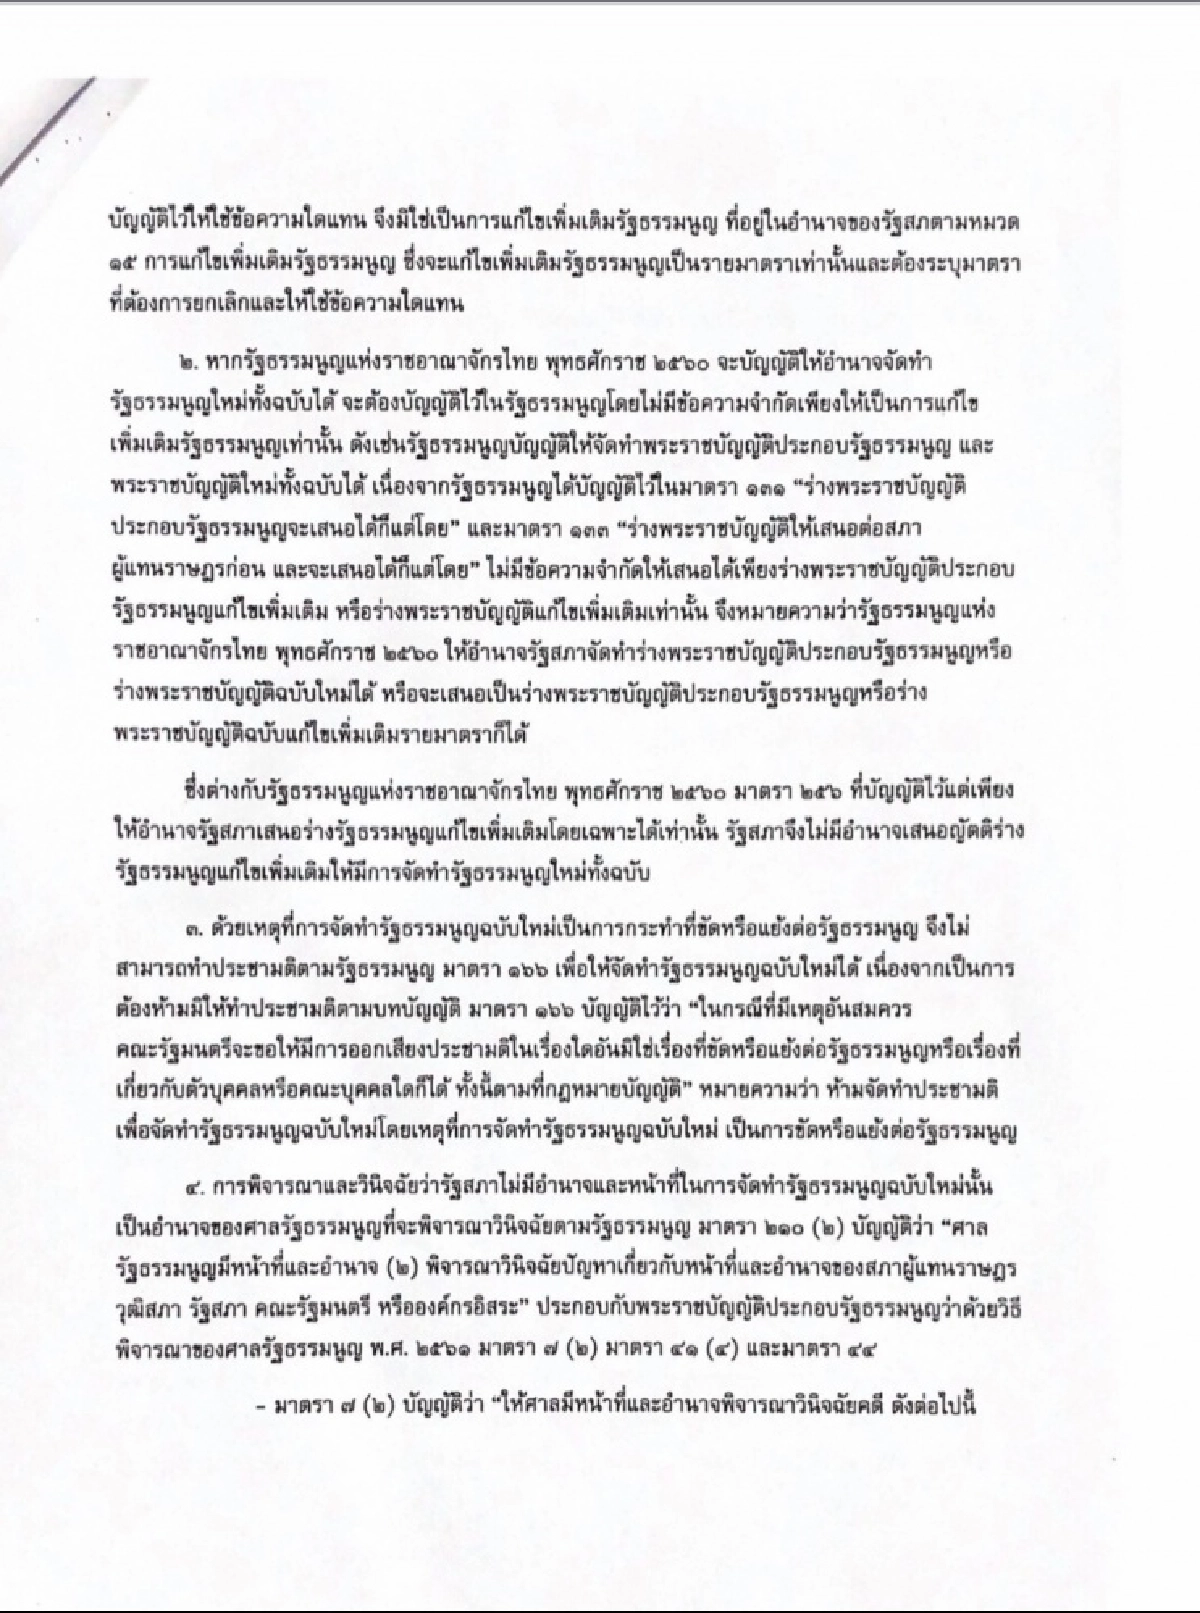 บัญญัติไว้ให้ใช้ข้อความใดแทน จึงมิใช่เป็นการแก้ไขเพิ่มเติมรัฐธรรมนูญ ที่อยู่ในอำนาจของรัฐสภตามหมวด
๑๕ การแก้ไขเพิ่มเติมรัฐธรรมนูญ ซึ่งจะแก้ไขเพิ่มเติมรัฐธรรมนูญเป็นรายมาตราเท่านั้นและต้องระบุมาตรา
ที่ต้องการยกเลิกและให้ใช้ข้อความใดแทน
๒. หากรัฐธรรมนูญแห่งราชอาณาจักรไทย พุทธศักราช ๒๕๖๐ จะบัญญัติให้อำนาจจัดทำ
รัฐธรรมนูญใหม่ทั้งฉบับได้ จะต้องบัญญัติไว้ในรัฐธรรมนูญโดยไม่มีข้อความจำกัดเพียงให้เป็นการแก้ไข
เพิ่มเติมรัฐธรรมนูญเท่านั้น ดังเช่นรัฐธรรมนูญบัญญัติให้จัดทำพระราชบัญญัติประกอบรัฐธรรมนูญ และ
พระราชบัญญัติใหม่ทั้งฉบับได้ เนื่องจากรัฐธรรมนูญได้บัญญัติไว้ในมาตรา ๑๓๑ “ร่างพระราชบัญญัติ
ประกอบรัฐธรรมนูญจะเสนอได้ก็แต่โดย” และมาตรา ๑๓๓ “ร่างพระราชบัญญัติให้เสนอต่อสภา
ผู้แทนราษฎรก่อน และจะเสนอได้ก็แต่โดย” ไม่มีข้อความจำกัดให้เสนอได้เพียงร่างพระราชบัญญัติประกอบ
รัฐธรรมนูญแก้ไขเพิ่มเติม หรือร่างพระราชบัญญัติแก้ไขเพิ่มเติมเท่านั้น จึงหมายความว่ารัฐธรรมนูญแห่ง
ราชอาณาจักรไทย พุทธศักราช ๒๕๖๐ ให้อำนาจรัฐสภาจัดทำร่างพระราชบัญญัติประกอบรัฐธรรมนูญหรือ
ร่างพระราชบัญญัติฉบับใหม่ได้ หรือจะเสนอเป็นร่างพระราชบัญญัติประกอบรัฐธรรมนูญหรือร่าง
พระราชบัญญัติฉบับแก้ไขเพิ่มเติมรายมาตราก็ได้
ซึ่งต่างกับรัฐธรรมนูญแห่งราชอาณาจักรไทย พุทธศักราช ๒๕๖๐ มาตรา ๒๕๖ ที่บัญญัติไว้แต่เพียง
ให้อำนาจรัฐสภาเสนอร่างรัฐธรรมนูญแก้ไขเพิ่มเติมโดยเฉพาะได้เท่านั้น รัฐสภาจึงไม่มีอำนาจเสนอญัตติร่าง
รัฐธรรมนูญแก้ไขเพิ่มเติมให้มีการจัดทำรัฐธรรมนูญใหม่ทั้งฉบับ
๓. ด้วยเหตุที่การจัดทำรัฐธรรมนูญฉบับใหม่เป็นการกระทำที่ขัดหรือแย้งต่อรัฐธรรมนูญ จึงไม่
สามารถทำประชามติตามรัฐธรรมนูญ มาตรา ๑๖๖ เพื่อให้จัดทำรัฐธรรมนูญฉบับใหม่ได้ เนื่องจากเป็นการ
ต้องห้ามมิให้ทำประชามติตามบทบัญญัติ มาตรา ๑๖๖ บัญญัติไว้ว่า “ในกรณีที่มีเหตุอันสมควร
คณะรัฐมนตรีจะขอให้มีการออกเสียงประชามติในเรื่องใดอันมิใช่เรื่องที่ขัดหรือแย้งต่อรัฐธรรมนูญหรือเรื่องที่
เกี่ยวกับตัวบุคคลหรือคณะบุคคลใดก็ได้ ทั้งนี้ตามที่กฎหมายบัญญัติ” หมายความว่า ห้ามจัดทำประชามติ
เพื่อจัดทำรัฐธรรมนูญฉบับใหม่โดยเหตุที่การจัดทำรัฐธรรมนูญฉบับใหม่ เป็นการขัดหรือแย้งต่อรัฐธรรมนูญ
๔. การพิจารณาและวินิจฉัยว่ารัฐสภาไม่มีอำนาจและหน้าที่ในการจัดทำรัฐธรรมนูญฉบับใหม่นั้น
เป็นอำนาจของศาลรัฐธรรมนูญที่จะพิจารณาวินิจฉัยตามรัฐธรรมนูญ มาตรา ๒๑๐ (๒) บัญญัติว่า “ศาล
รัฐธรรมนูญมีหน้าที่และอำนาจ (๒) พิจารณาวินิจฉัยปัญหาเกี่ยวกับหน้าที่และอำนาจของสภาผู้แทนราษฎร
วุฒิสภา รัฐสภา คณะรัฐมนตรี หรือองค์กรอิสระ” ประกอบกับพระราชบัญญัติประกอบรัฐธรรมนูญว่าด้วยวิธี
พิจารณาของศาลรัฐธรรมนูญ พ.ศ. ๒๕๖๑ มาตรา ๗ (๒) มาตรา ๔๑ (๔) และมาตรา ๔๔
- มาตรา ๗ (๒) บัญญัติว่า “ให้ศาลมีหน้าที่และอำนาจพิจารณาวินิจฉัยคดี ดังต่อไปนี้